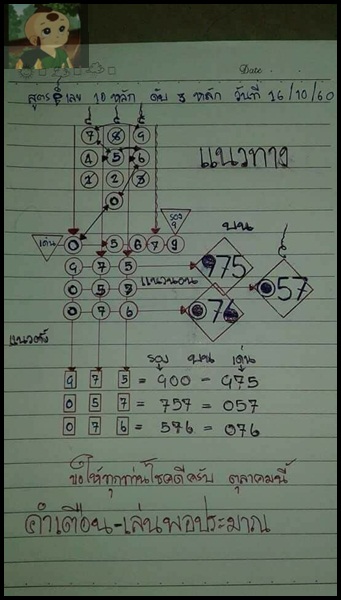 Date
สูตร เลข 10 หลัก กับ 3 หลัก วันที่ 16/10/60
7 8 9
4 5 6
1 2 3
0
แนวทาง
รอง 9
บน
เด่น 0 5 6 7 9
9 7 5 975
0 5 7 แนวนอน 057
0 7 6 76
แนวตั้ง
รอง บน เด่น
9 7 5 = 900 - 975
0 5 7 = 757 = 057
0 7 6 = 576 = 076
ขอให้ทุกท่านโชคดีครับ ตุลาคมนี้
คำเตือน-เล่นพอประมาณ